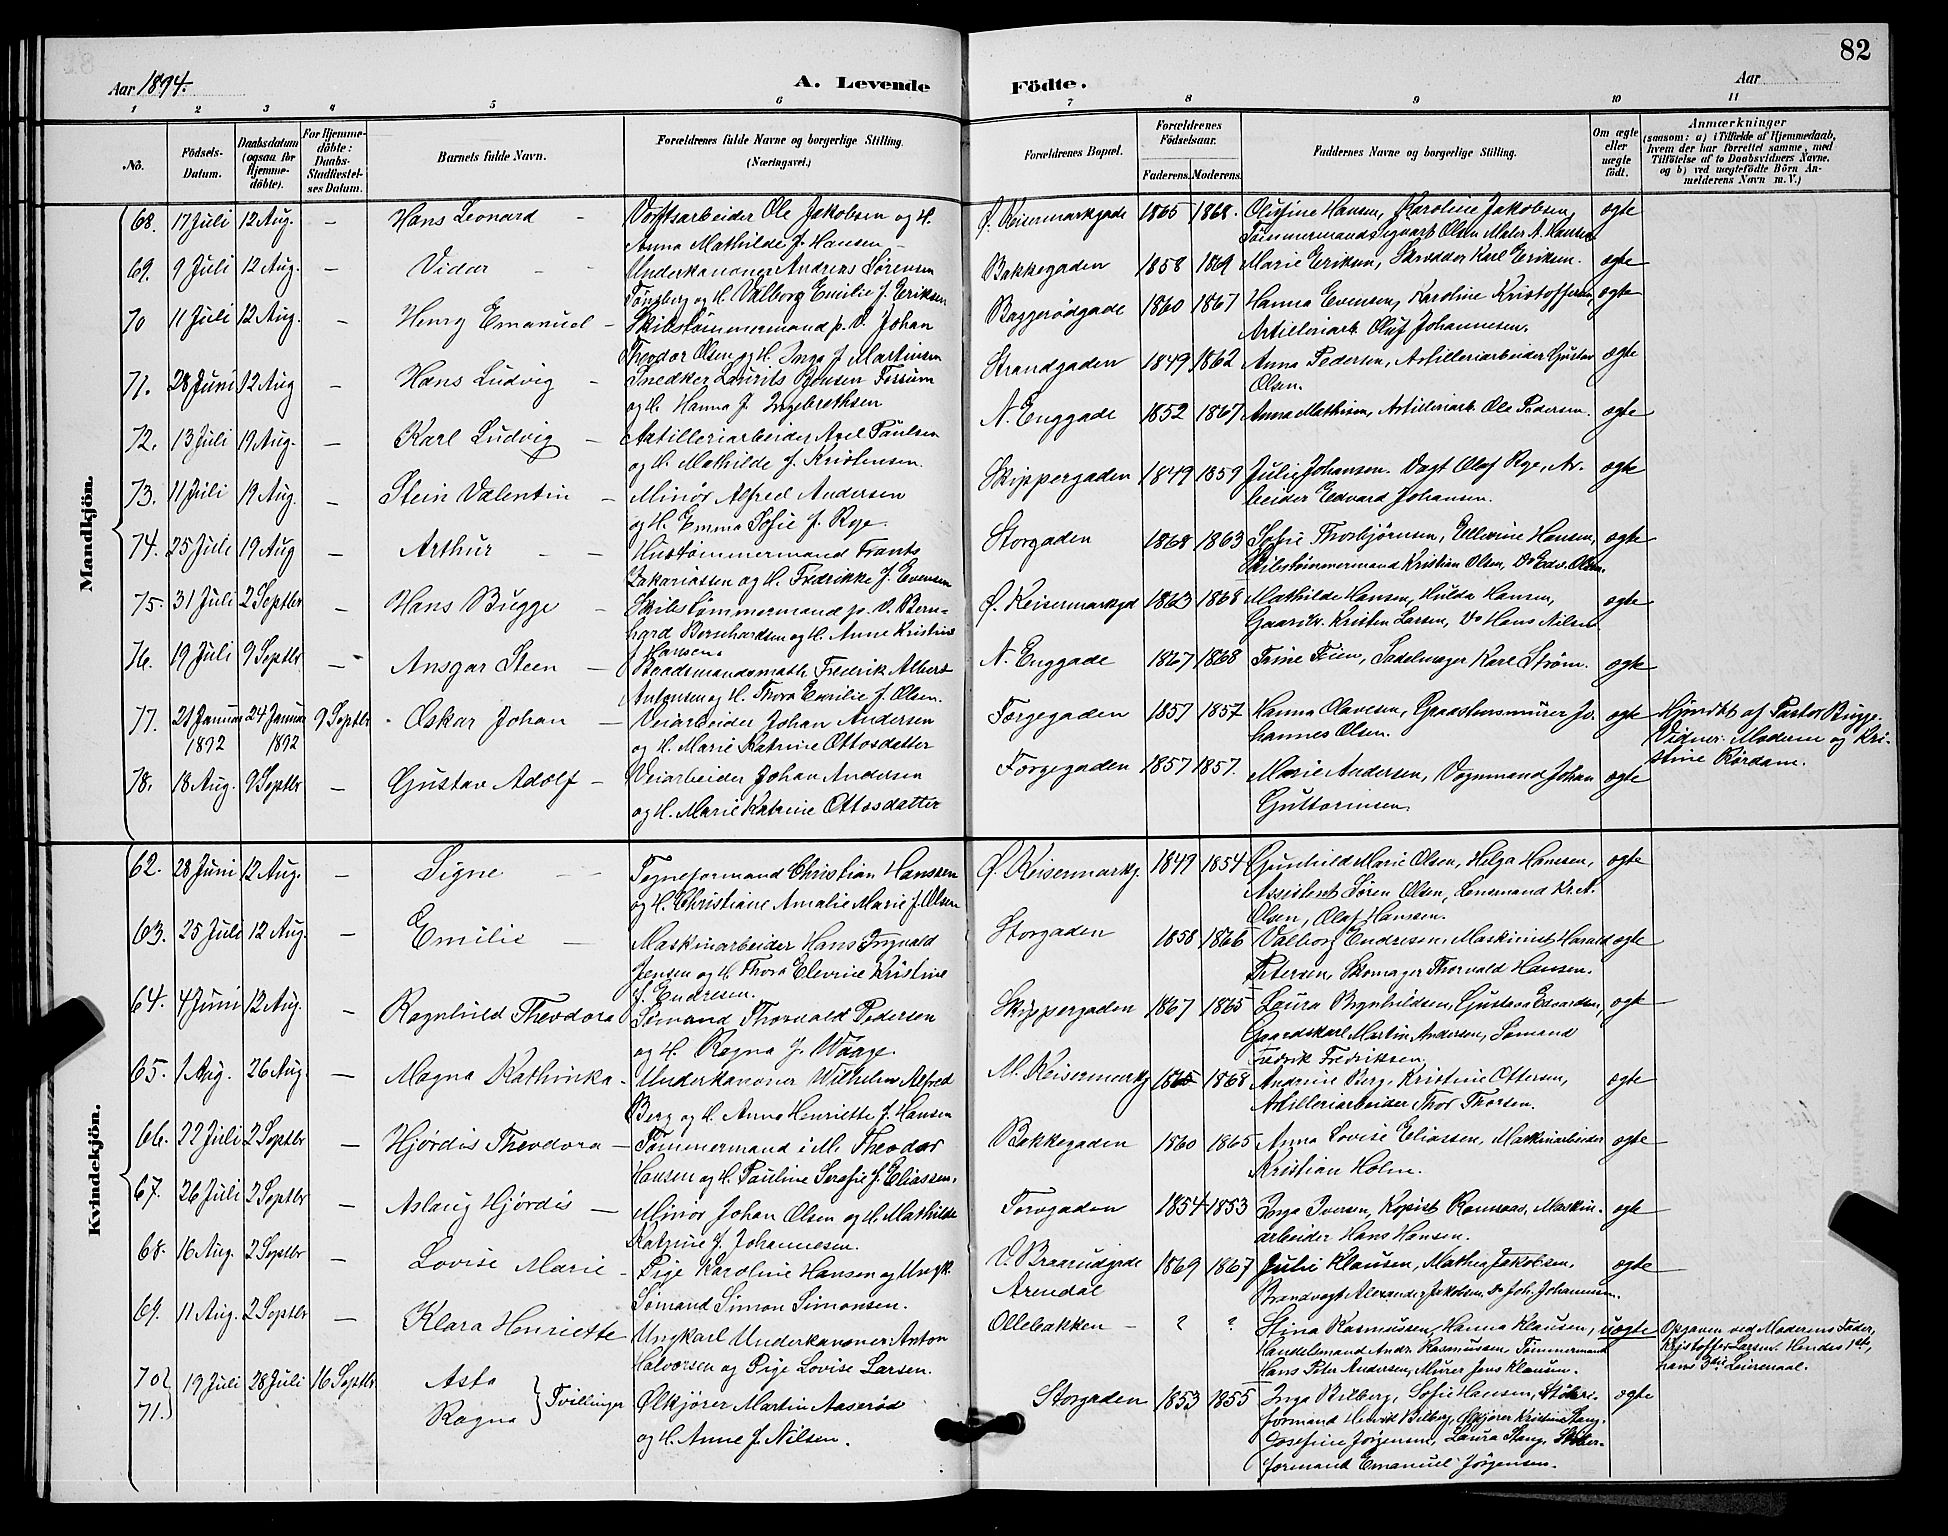 82
Aar 1894.
A. Levende Födte.
Aar
1 2 3 4 5 6 7 8 9 10 11
No.
Födsels-Datum.
Daabsdatum (ogsaa for Hjemme-döbte).
For Hjemme-döbte: Daabs-Stadfæstel-ses Datum.
Barnets fulde Navn.
Forældrenes fulde Navne og borgerlige Stilling. (Næringsvei.)
Forældrenes Bopæl.
Forældrenes Födselsaar.
Faderens. Moderens.
Faddernes Navne og borgerlige Stilling.
Om ægte eller uægte födt.
Anmærkninger
(saasom: a) i Tilfælde af Hjemmedaab, hvem der har forrettet samme, med Tilföielse af to Daabsvidners Navne, og b) ved uægtefödte Börn An-melderens Navn m. V.)
Mandkjön.
68. 17 Juli 12 Aug. – Hans Leonard – Værftsarbeider Ole Jakobsen og H. Anna Mathilde f. Hansen – Ø. Keisermarkgade 1865 1868. Olufine Hansen, Karoline Jakobsen, Tømmermand Sigvart Olsen Maler A. Hansen ægte
69. 9 Juli 12 Aug. – Vidar – Underkanoner Andreas Sørensen Tønsberg og H. Valborg Emilie f. Eriksen Bakkegaden 1858 1869 Marie Eriksen, Skrædder Karl Eriksen. ægte
70 11 Juli 12 Aug. – Henry Emanuel – Skibstømmermand p. V. Johan Theodor Olsen og H. Inga f. Martinsen Baggerødgade 1860 1867 Hanna Evensen, Karoline Kristoffersen, Artilleriarb. Oluf Johannesen. ægte
71. 28 Juni 12 Aug – Hans Ludvig – Snedker Laurits Bensen Forsum og H. Hanna f. Ingebrethsen Strandgaden 1849 1862 Anna Pedersen, Artilleriarbeider Gustav Olsen. ægte
72. 13 Juli 19 Aug. – Karl Ludvig – Artilleriarbeider Axel Paulsen og H. Mathilde f. Kristensen N. Enggade 1852 1867 Anna Mathisen, Artilleriarb. Ole Pedersen. ægte
73. 11 Juli 19 Aug. – Stein Valentin – Minör Alfred Andersen og H. Emma Sofie f. Rye. Skippergaden 1849 1859 Julie Johansen. Vagt Olaf Rye, Ar-beider Edvard Johansen. ægte
74. 25 Juli 19 Aug – Arthur – Hustømmermand Frants Zakariassen og H. Fredrikke f. Evensen Storgaden 1868 1863 Sofie Thorbjørnsen, Ellevine Hansen, Skibstømmermand Kristian Olsen, Do Edv. Olsen. ægte
75. 31 Juli 2 Septbr – Hans Bugge – Skibstømmermand p. V. Bern-hard Bernhardsen og H. Anne Kristine f. Hansen. Ø. Keisermarkgd 1863 1868 Mathilde Hansen, Hulda Hansen, Gaardbr. Kristen Larsen, Do Hans Nilsen ægte
76. 19 Juli 9 Septbr – Ansgar Steen – Baadsmandsmath Frederik Albert Antonsen og H. Thora Emilie f. Olsen. N. Enggade 1867 1868 Trine Feien, Sadelmager Karl Strøm. ægte
77. 21 Januar 1892 24 Januar 1892 9 Septbr Oskar Johan – Veiarbeider Johan Andersen og H. Marie Katrine Ottosdatter Torgegaden 1857 1857 Hanna Olavesen, Graastensmurer Jo-hannes Olsen. ægte Hjemdbt af Pastor Bugge. Vidner: Moderen og Kri-stine Rördam.
78. 18 Aug. 9 Septbr – Gustav Adolf – Veiarbeider Johan Andersen og H. Marie Katrine Ottosdatter Torgegaden 1857 1857. Marie Andersen, Vognmand Johan Guttormsen. ægte
Kvindekjön.
62. 28 Juni 12 Aug. – Signe – Tegneformand Christian Hanssen og H. Christiane Amalie Marie f. Olsen Ø. Keisermarkg. 1849 1854 Gunhild Marie Olsen, Helga Hanssen, Assistent Søren Olsen, Lensmand Kr. A. Olsen, Olaf Hanssen. ægte
63. 25 Juli 12 Aug. – Emilie – Maskinarbeider Hans Trygvald Jensen og H. Thora Elevine Kristine f. Endresen. Storgaden 1858 1866 Valborg Endresen, Maskinist Harald Petersen, Skomager Thorvald Hansen. ægte
64. 4 Juni 12 Aug. – Ragnhild Theodora Sømand Thorvald Pedersen og H. Ragna f. Waage. Skippergaden 1867 1865 Laura Brynhildsen, Gustava Edvardsen, Gaardskarl Martin Andersen, Sømand Fredrik Fredriksen. ægte
65. 1 Aug. 26 Aug. – Magna Kathinka – Underkanoner Wilhelm Alfred Berg og H. Anna Henriette f. Hansen M. Keisermarkg 1865 1868 Andrine Berg, Kristine Ottersen, Artilleriarbeider Thor Thorsen. ægte
66. 22 Juli 2 Septbr – Hjørdis Theodora – Tømmermand i M. Theodor Hansen og H. Pauline Serafie f. Eliassen. Bakkegaden 1860 1865 Anna Lovise Eliassen, Maskinarbeider Kristian Holm. ægte
67. 26 Juli 2 Septbr – Aslaug Hjørdis – Minör Johan Olsen og H. Mathilde Katrine f. Johannesen. Torvgaden 1854 1853 Inga Iversen, Kopist Ramsaas, Maskin-arbeider Hans Hansen. ægte
68. 16 Aug. 2 Septbr – Lovise Marie – Pige Karoline Hansen og Ungk. Sømand Simon Simonsen. V. Braarudgade Arendal 1869 1867 Julie Klausen, Mathea Jakobsen, Brandvagt Alexander Jakobsen, Do Joh. Johannesen. ægte
69. 11 Aug. 2 Septbr – Klara Henriette Ungkarl Underkanoner Anton Halvorsen og Pige Lovise Larsen. Ollebakken – ? ? Stina Rasmussen, Hanna Klausen, Handelsmand Andr. Rasmussen Tømmermand Hans Peter Andersen, Murer Jens Klausen. uægte Opgaven ved Moderens Fader, Kristoffer Larsen. Hendes 1ste, hans 3die Leiermaal.
70 71. } 19 Juli 28 Juli 16 Septbr Asta Ragna } Tvillinger Ølkjører Martin Aaserød og H. Anne f. Nilsen. Storgaden 1853 1855 Inga Bilberg, Sofie Hansen, Støberi-formand Henrik Bilberg, Ølkjører Kristine Stang. Josefine Jørgensen, Laura Stang, Støber-formand Emanuel Jørgensen. ægte